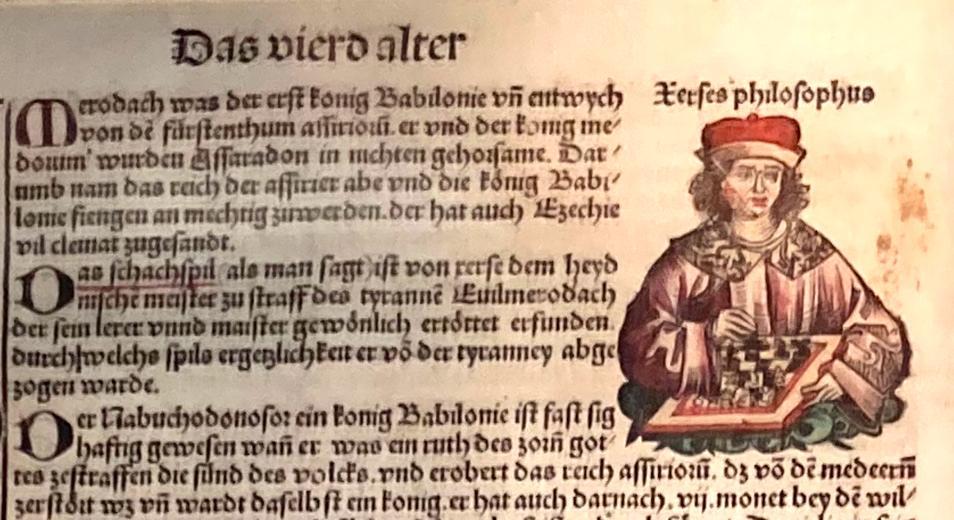 Das vierd alter
Merodach was der erst konig Babilonie vñ entwych
von dē fürstenthum assirioɤ̃. er vnd der konig me⸗
doɤum' wurden Assaradon in nichten gehorsame. Dar⸗
umb nam das reich der assirier abe vnd die künig Babi⸗
lonie fiengen an mechtig zuwerden. der hat auch Ezechie
vil cleinat zugesandt.
Das schachspil als man sagt ist von xerse dem heyd
nische meister zu straff des tyrannē Euilmerodach
der sein lerer vnnd maister gewönlich ertöttet erfunden.
durch welchs spils ergetzlichkeit er vō der tyranney abge
zogen warde.
Der Nabuchodonosor ein konig Babilonie ist fast sig
haftig gewesen wañ er was ein ruth des zorñ got⸗
tes zestraffen die sünd des volcks. vnd erobert das reich assirioɤ̃. dz vō dē medeern
zerstört wz vñ wardt daselbst ein konig. er hat auch darnach. vij. monet bey dē wil⸗
Xerses philosophus